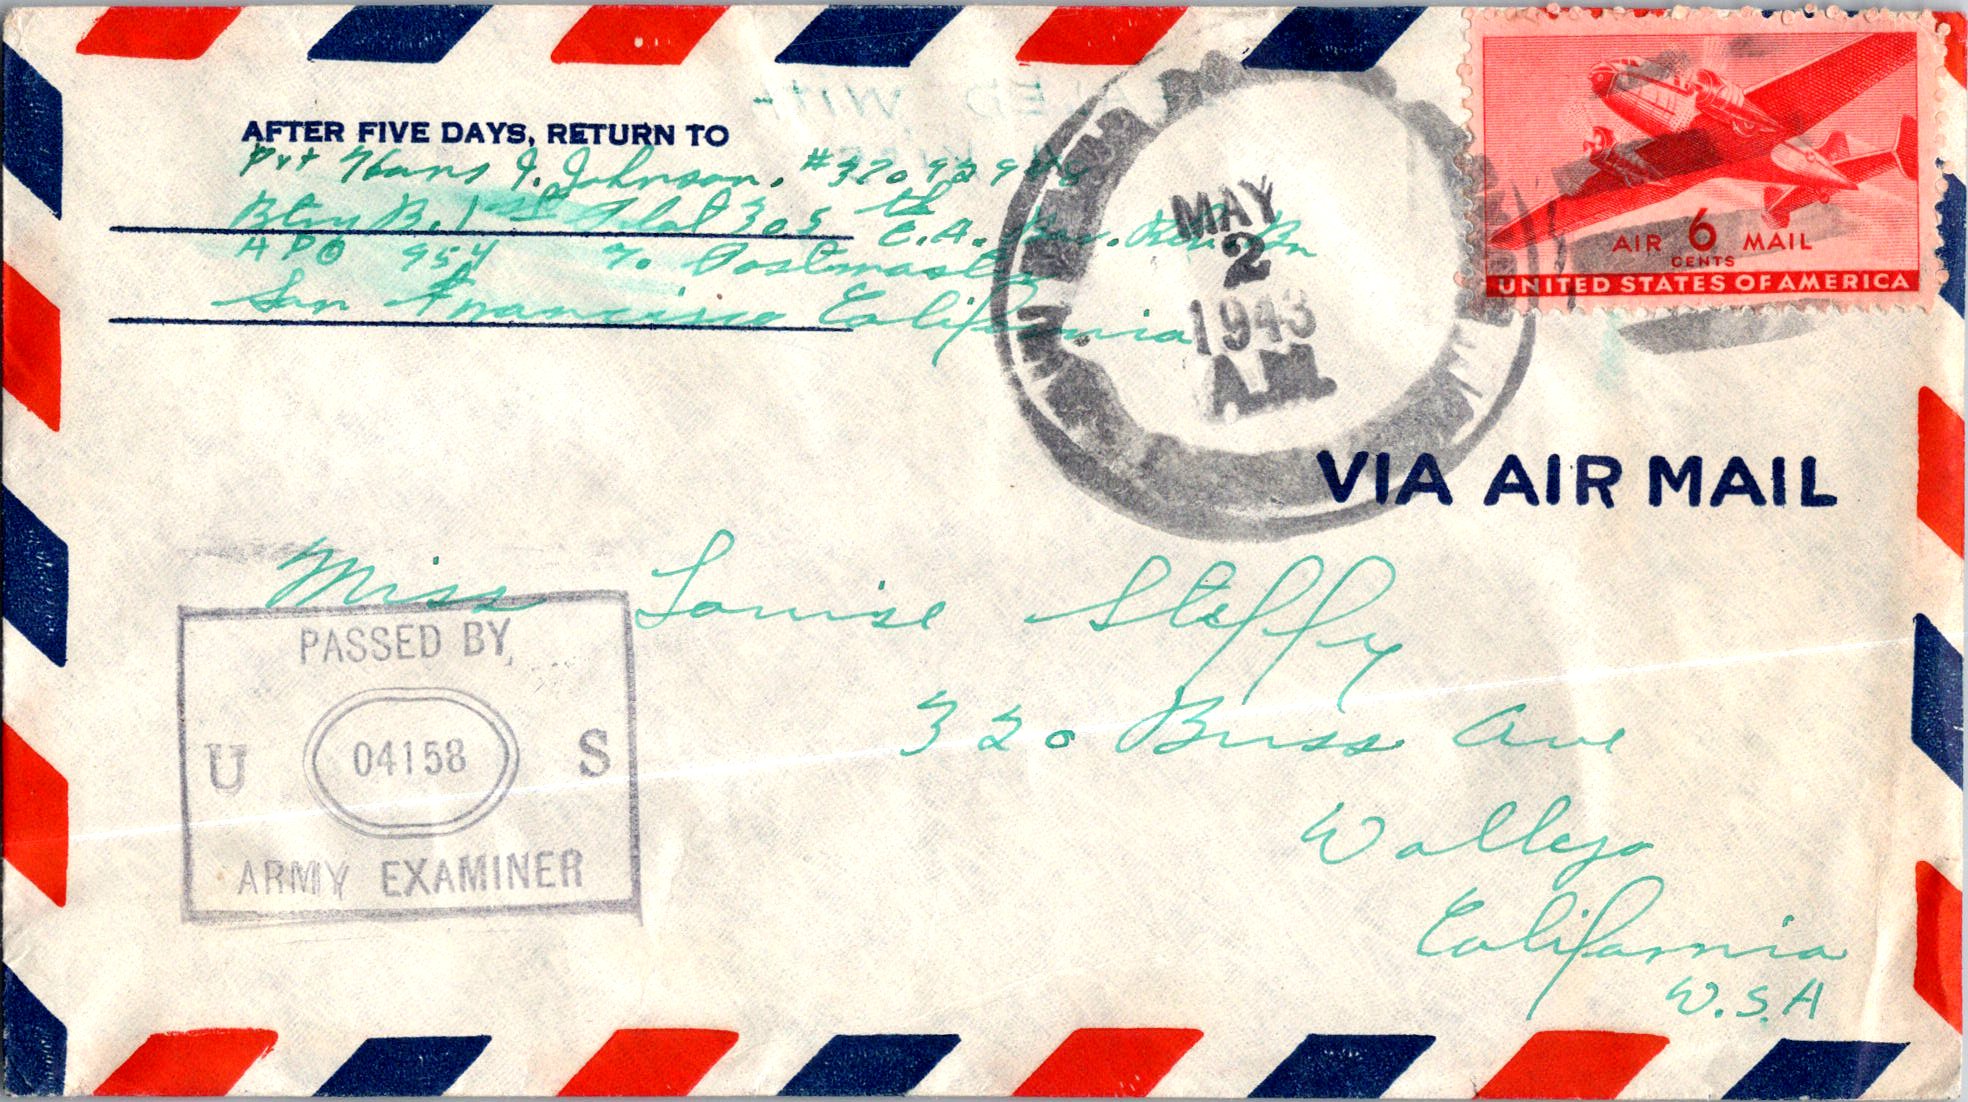 AFTER FIVE DAYS, RETURN TO
Pvt Hans J. Johnson. #
Btry B. 1st 305th C.A. Bn
APO 954 % Postmaster
San Francisco California
MAY
2
1943
A.M.
AIR 6 MAIL
CENTS
UNITED STATES OF AMERICA
VIA AIR MAIL
Miss Louise Steffy
320 Buss Ave
Vallejo
California
U.S.A
PASSED BY
U 04158 S
ARMY EXAMINER